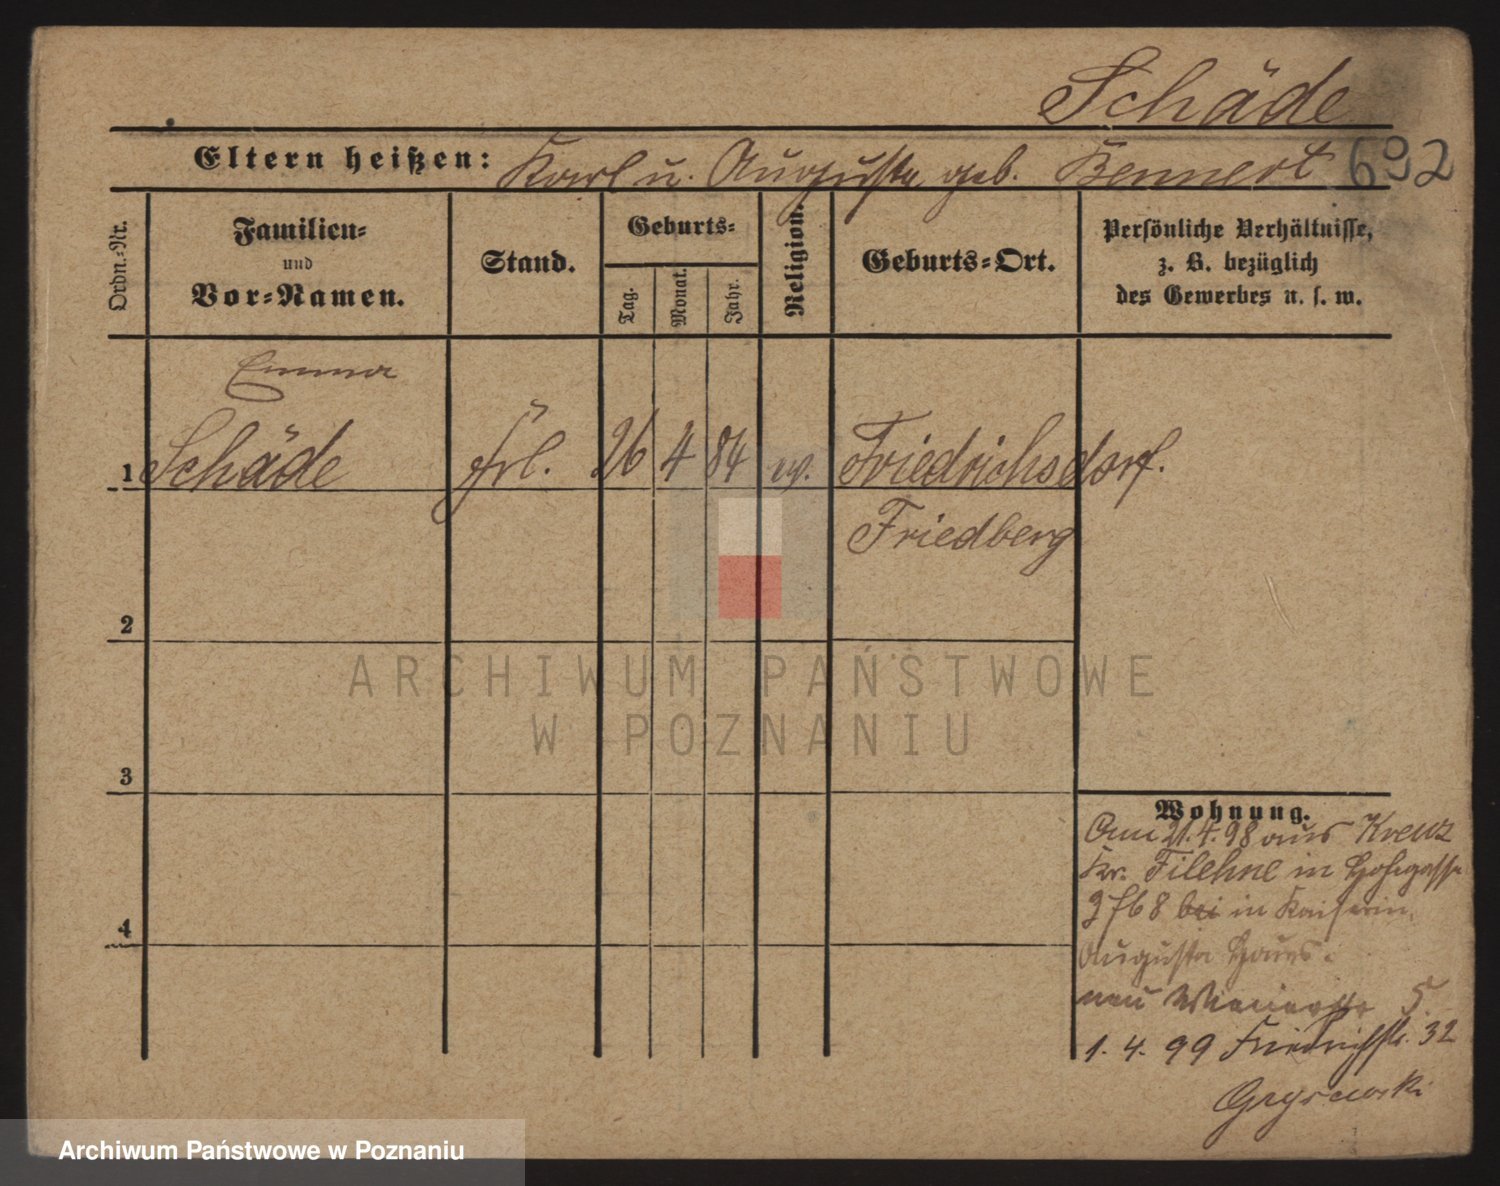 Schäde
Eltern heißen: Karl u. Augusta geb. Bennert 692
Ordn.-Nr.
Familien-
und
Vor-Namen.
Stand.
Geburts-
Tag.
Monat.
Jahr.
Religion.
Geburts-Ort.
Persönliche Verhältnisse,
z. B. bezüglich
des Gewerbes u. s. w.
Emma
1 Schäde Frl. 26 4 84 ev. Friedrichsdorf.
Friedberg
2
3
4
Wohnung.
Am 21.4.98 aus Kreuz
Kr. Filehne in
bei in Kaiserin
Augusta Haus.
neu 5.
1. 4. 99 Friedrichstr. 32
ARCHIWUM PAŃSTWOWE
W POZNANIU
Archiwum Państwowe w Poznaniu